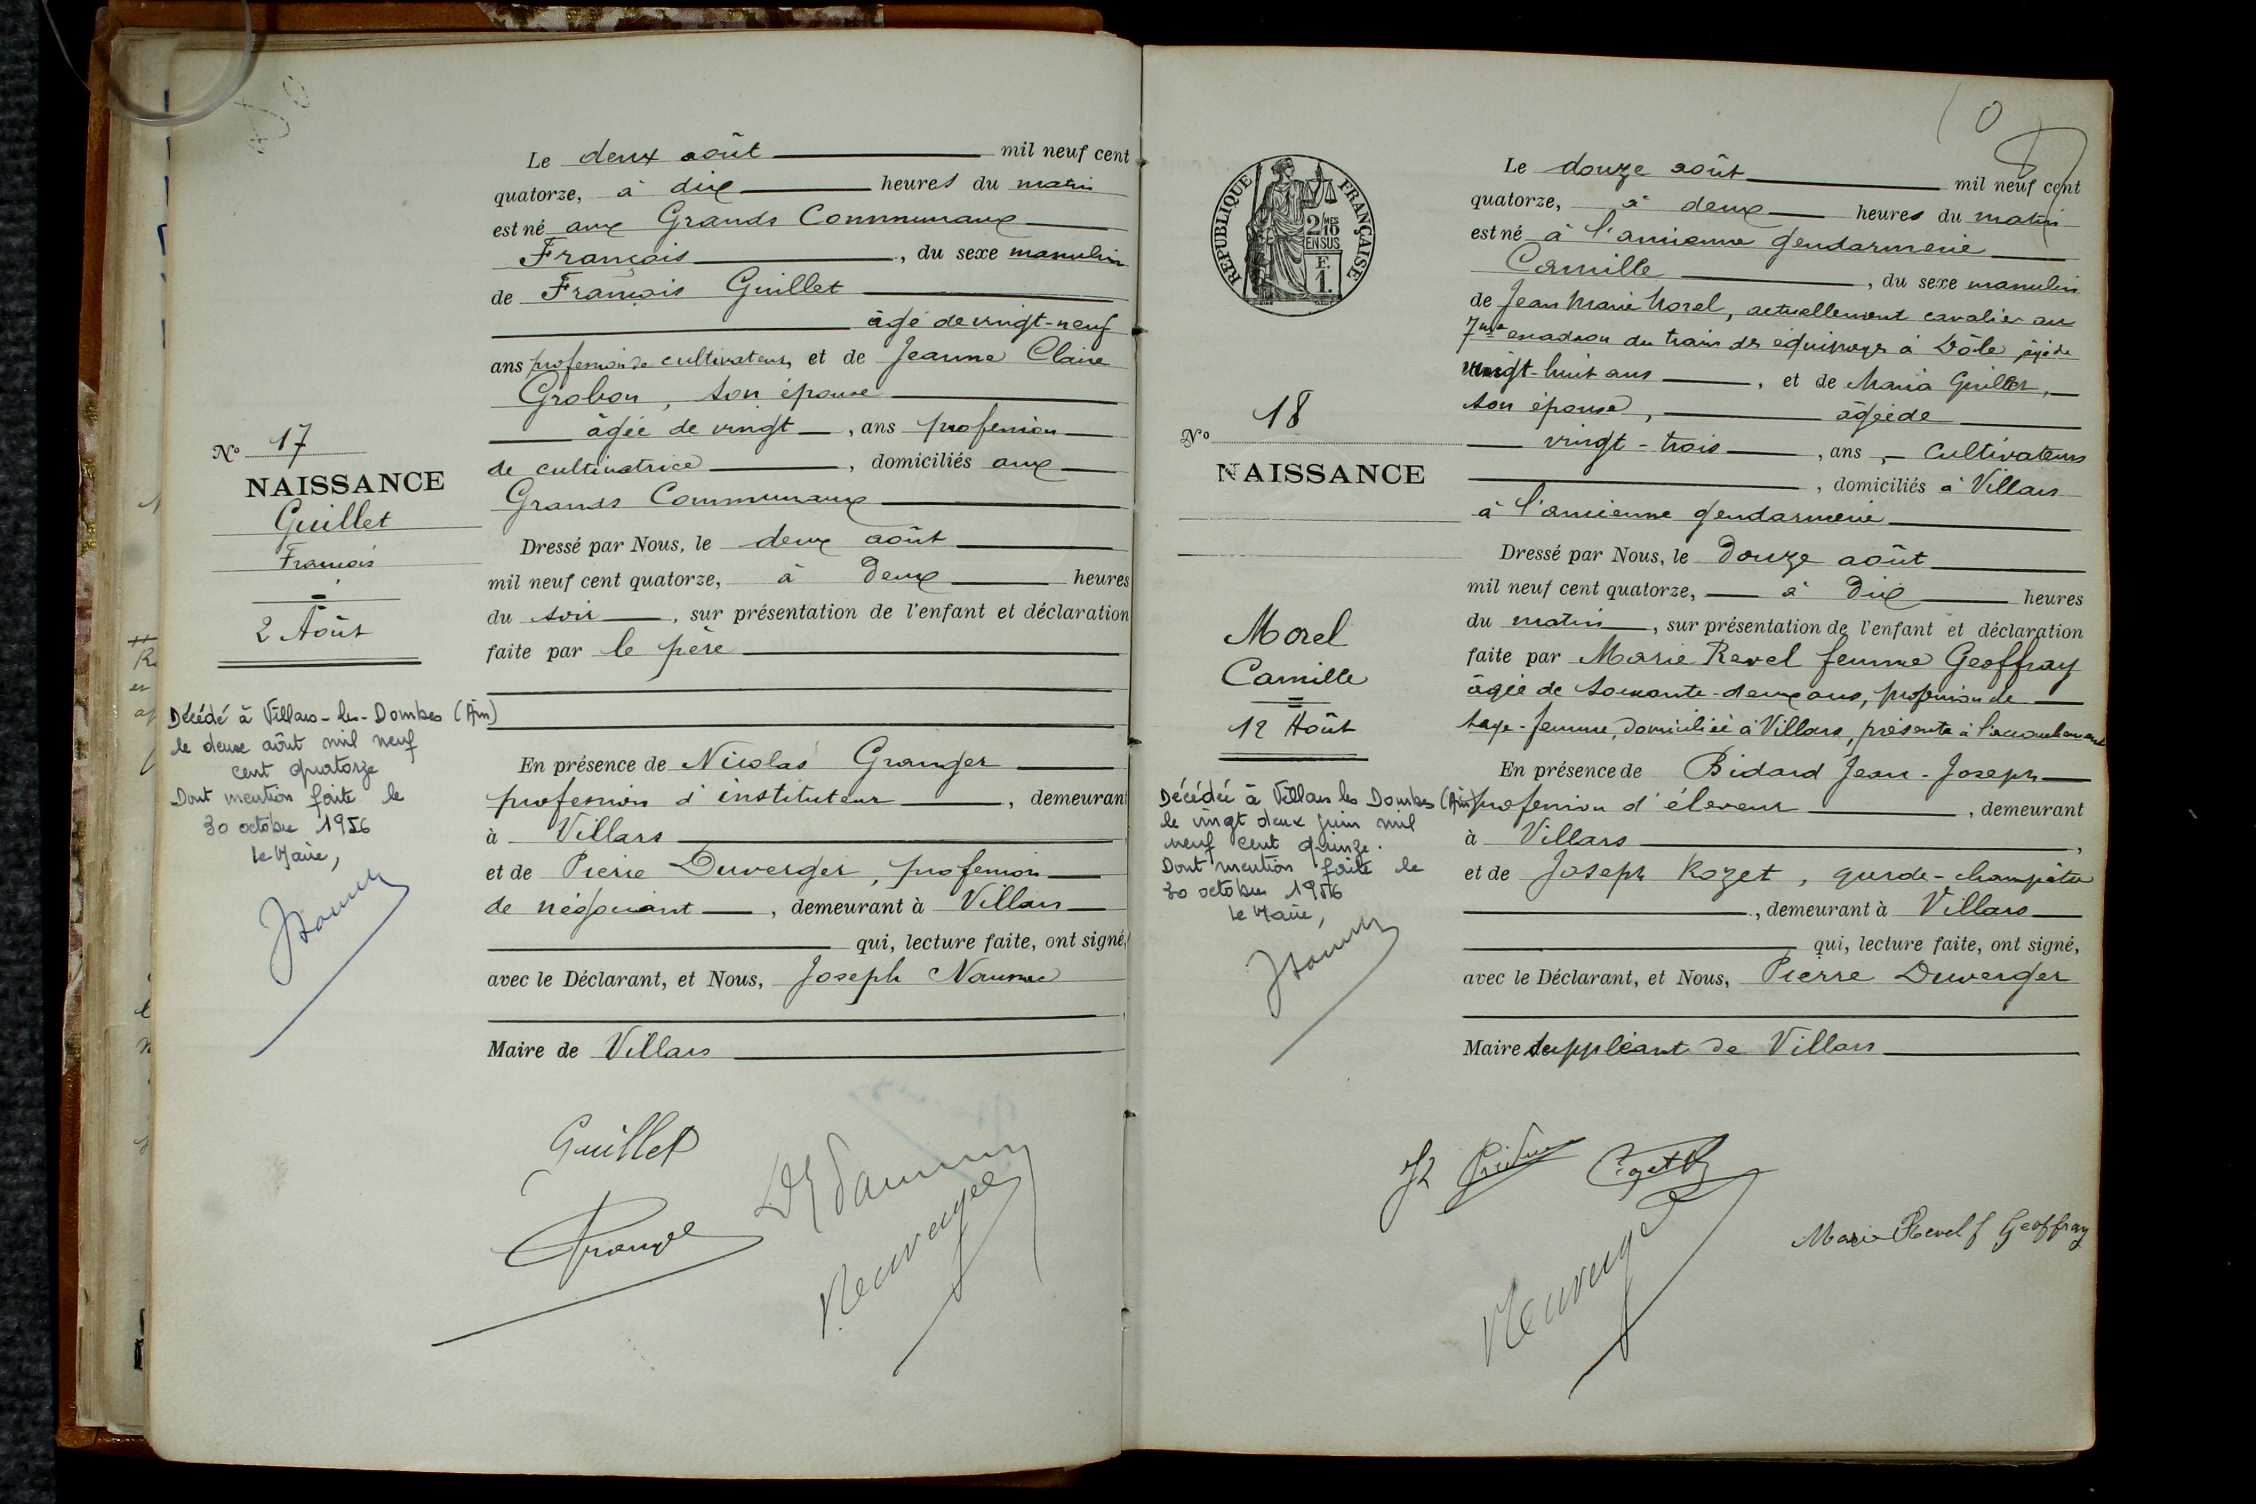 Le deux août mil neuf cent
quatorze, à dix heures du matin
est né aux Grands Communaux
François, du sexe masculin
de François Guillet
âgé de vingt-neuf
ans profession de cultivateur, et de Jeanne Claire
Grobon, son épouse
âgée de vingt, ans profession
de cultivatrice, domiciliés aux
Grands Communaux
Dressé par Nous, le deux août
mil neuf cent quatorze, à deux heures
du soir, sur présentation de l'enfant et déclaration
faite par le père
En présence de Nicolas Granger
profession d'instituteur, demeurant
à Villars
et de Pierre Duverger, profession
de négociant, demeurant à Villars
qui, lecture faite, ont signé,
avec le Déclarant, et Nous, Joseph
Maire de Villars
Guillet
No 17
NAISSANCE
Guillet
François
2 Août
Décédé à Villars-les-Dombes (Ain)
le deux août mil neuf
cent quatorze
Dont mention faite le
30 octobre 1956
le Maire,
REPUBLIQUE FRANÇAISE
2/10 MES
EN SUS
E.
1.
Le douze août mil neuf cent
quatorze, à deux heures du matin
est né à l'ancienne gendarmerie
Camille, du sexe masculin
de Jean Marie Morel, actuellement cavalier au
7me escadron du train des équipages à Dôle âgé de
vingt-huit ans, et de Maria Guillet,
son épouse, âgée de
vingt-trois, ans, cultivateurs
, domiciliés à Villars
à l'ancienne gendarmerie
Dressé par Nous, le Douze août
mil neuf cent quatorze, à Dix heures
du matin, sur présentation de l'enfant et déclaration
faite par Marie Revel femme Geoffray
âgée de soixante-deux ans, profession de
sage-femme, domiciliée à Villars, présente à l'accouchement
En présence de Bidard Jean-Joseph
profession d'éleveur, demeurant
à Villars,
et de Joseph Rozet, garde-champêtre
, demeurant à Villars
qui, lecture faite, ont signé,
avec le Déclarant, et Nous, Pierre Duverger
Maire suppléant de Villars
Marie Revel f Geoffray
No 18
NAISSANCE
Morel
Camille
12 Août
Décédée à Villars les Dombes (Ain)
le vingt deux juin mil
neuf cent quinze.
Dont mention faite le
30 octobre 1956
le Maire,